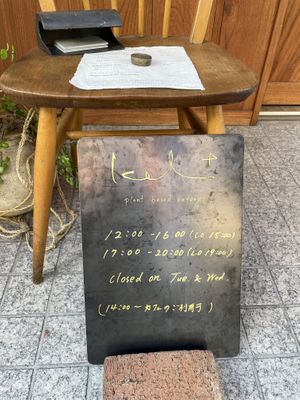 plant based eatery
12:00 - 16:00 (LO 15:00)
17:00 - 20:00 (LO 19:00)
closed on Tue. & Wed.
(14:00〜 カフェのご利用可)